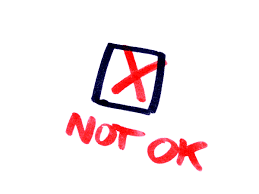 X
NOT OK